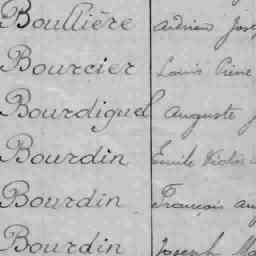 Boullière Adrien Jose
Bourcier Louis Pierre
Bourdiguel Auguste J
Bourdin Emile Victor
Bourdin François Au
Bourdin Joseph Ma